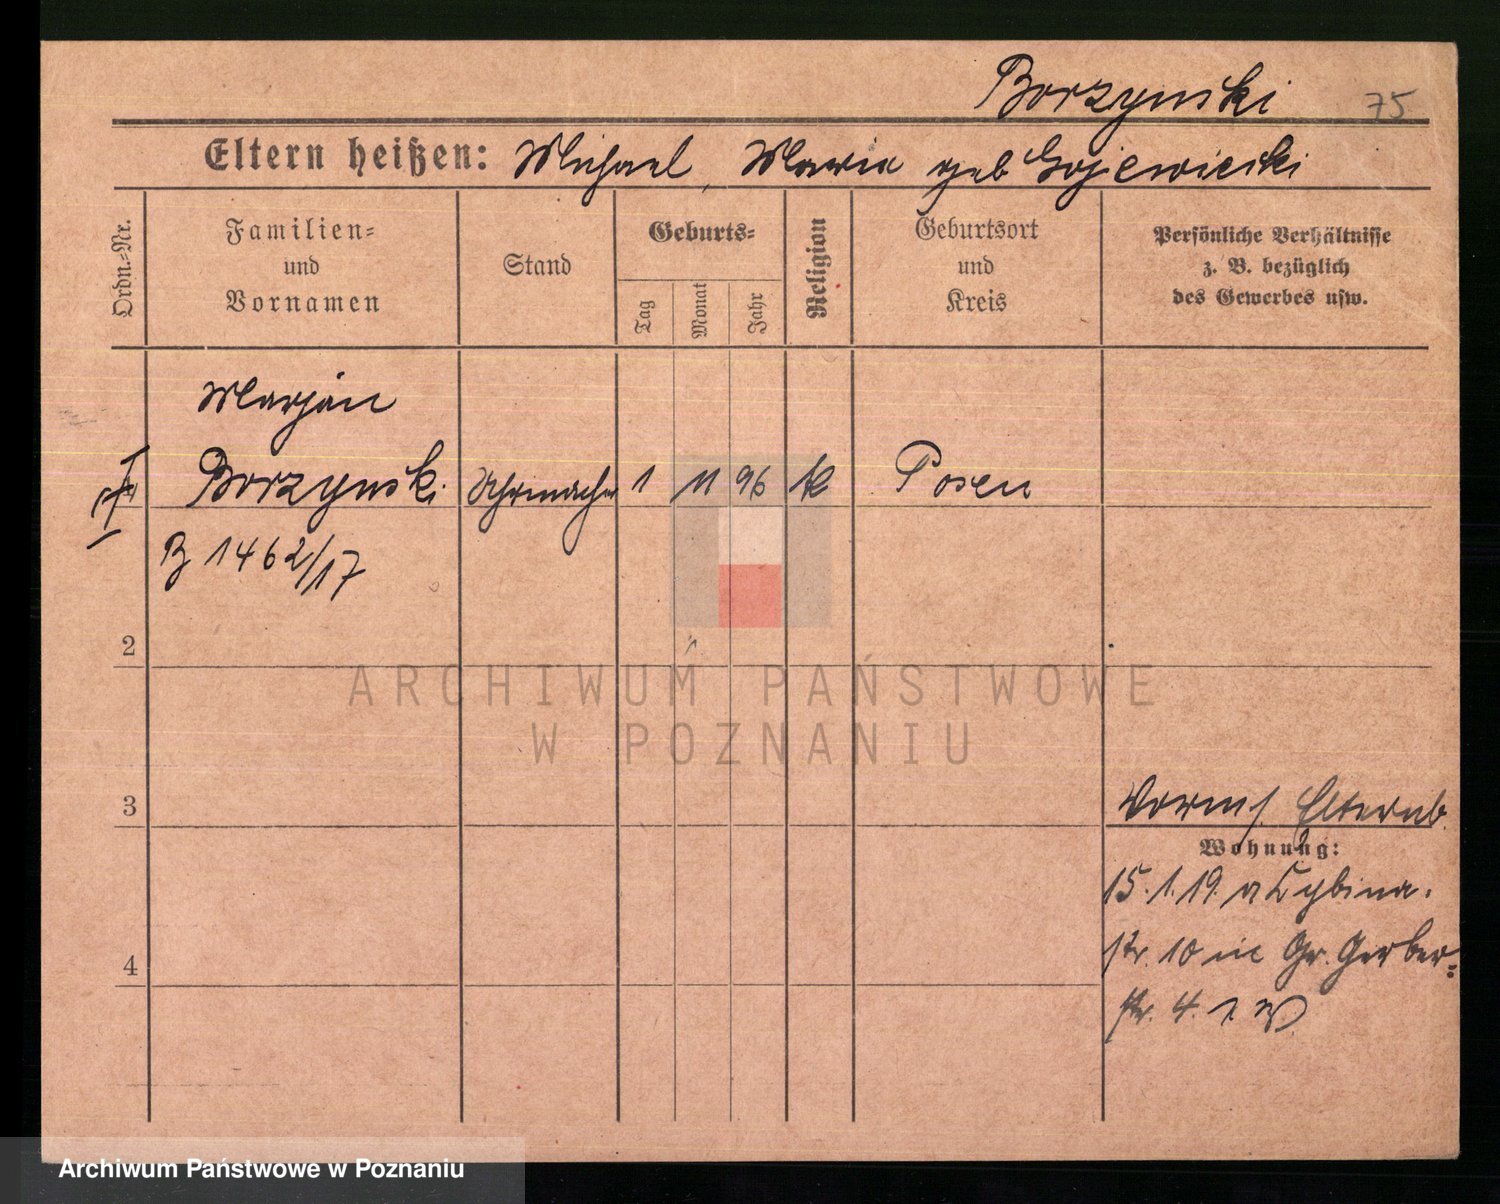 Borzynski 75
Eltern heißen: Michael, Maria geb Gojewieski
Ordn.-Nr.
Familien-
und
Vornamen
Stand
Geburts-
Tag
Monat
Jahr
Religion
Geburtsort
und
Kreis
Persönliche Verhältnisse
z. B. bezüglich
des Gewerbes usw.
Marjan
Borzynski Uhrmacher 1 11 96 k Posen
B 1462/17
2
3
4
Vorm.
Wohnung:
15.1.19. a Cybina-
str. 10 in Gr. Gerber-
str. 4.
ARCHIWUM PAŃSTWOWE
W POZNANIU
Archiwum Państwowe w Poznaniu